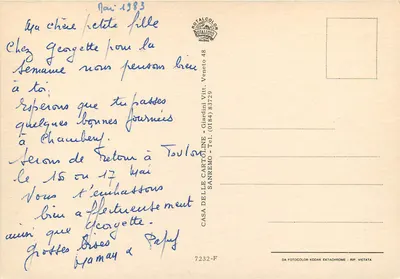 Mai 1983
Ma chère petite fille
Chez Georgette pour la
semaine nous pensons bien
à toi.
Esperons que tu passes
quelques bonnes journées
à Chambery.
Serons de Retour à Toulon
le 16 ou 17 Mai
Vous t'embassons
bien affectueusement
ainsi que Georgette.
grosses Bises
Maman & Papy
7232-F
CASA DELLE CARTOLINE - Giardini Vitt. Veneto 48
SANREMO - Tel. (0184) 83729
ROTALCOLOR
DA FOTOCOLOR KODAK EKTACHROME - RIP. VIETATA